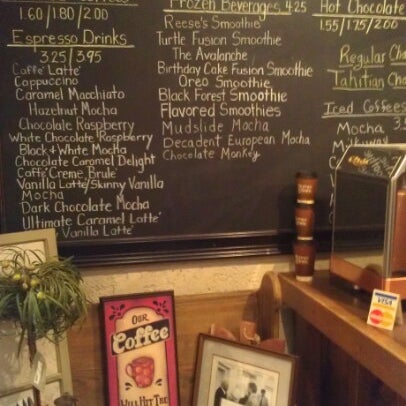 1.60/1.80/2.00
Espresso Drinks
3.25/3.95
Caffe' Latte'
Cappuccino
Caramel Macchiato
Hazelnut Mocha
Chocolate Raspberry
White Chocolate Raspberry
Black & White Mocha
Chocolate Caramel Delight
Caffe' Creme Brule'
Vanilla Latte'/Skinny Vanilla
Mocha
Dark Chocolate Mocha
Ultimate Caramel Latte'
Vanilla Latte'
Frozen Beverages 4.25
Reese's Smoothie
Turtle Fusion Smoothie
The Avalanche
Birthday Cake Fusion Smoothie
Oreo Smoothie
Black Forest Smoothie
Flavored Smoothies
Mudslide Mocha
Decadent European Mocha
Chocolate Monkey
Hot Chocolate
1.55/1.75/2.00
Regular
Tahitian
Iced Coffees
Mocha
OUR
Coffee
WILL HIT THE
VISA
MasterCard